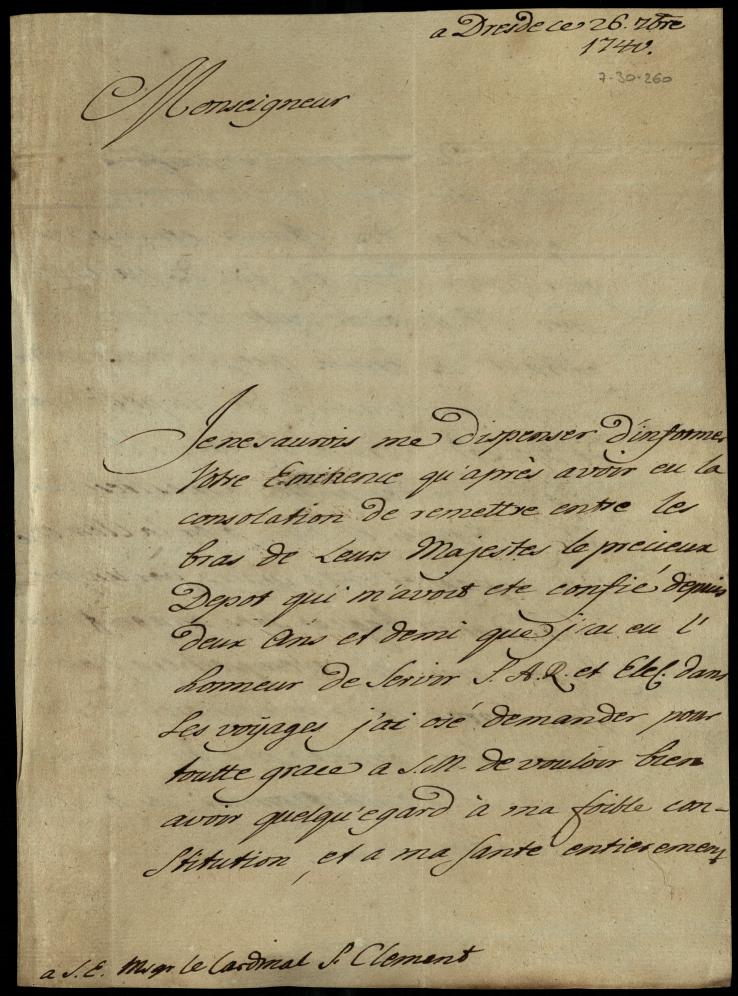 a Dresde ce 26. 7bre
1740.
7-30-260
Monseigneur
Je ne saurois me dispenser d'informer
Votre Eminence qu'après avoir eu la
consolation de remettre entre les
bras de Leurs Majestes le precieux
Depot qui m'avoit ete confié depuis
deux Ans et demi que j'ai eu l'
honneur de servir S. A. R. et Elec. dans
ses voyages j'ai osé demander pour
toutte grace a S.M. de vouloir bien
avoir quelqu'egard à ma foible con-
stitution, et a ma santé entierement
a S. E. Msgr le Cardinal S. Clement